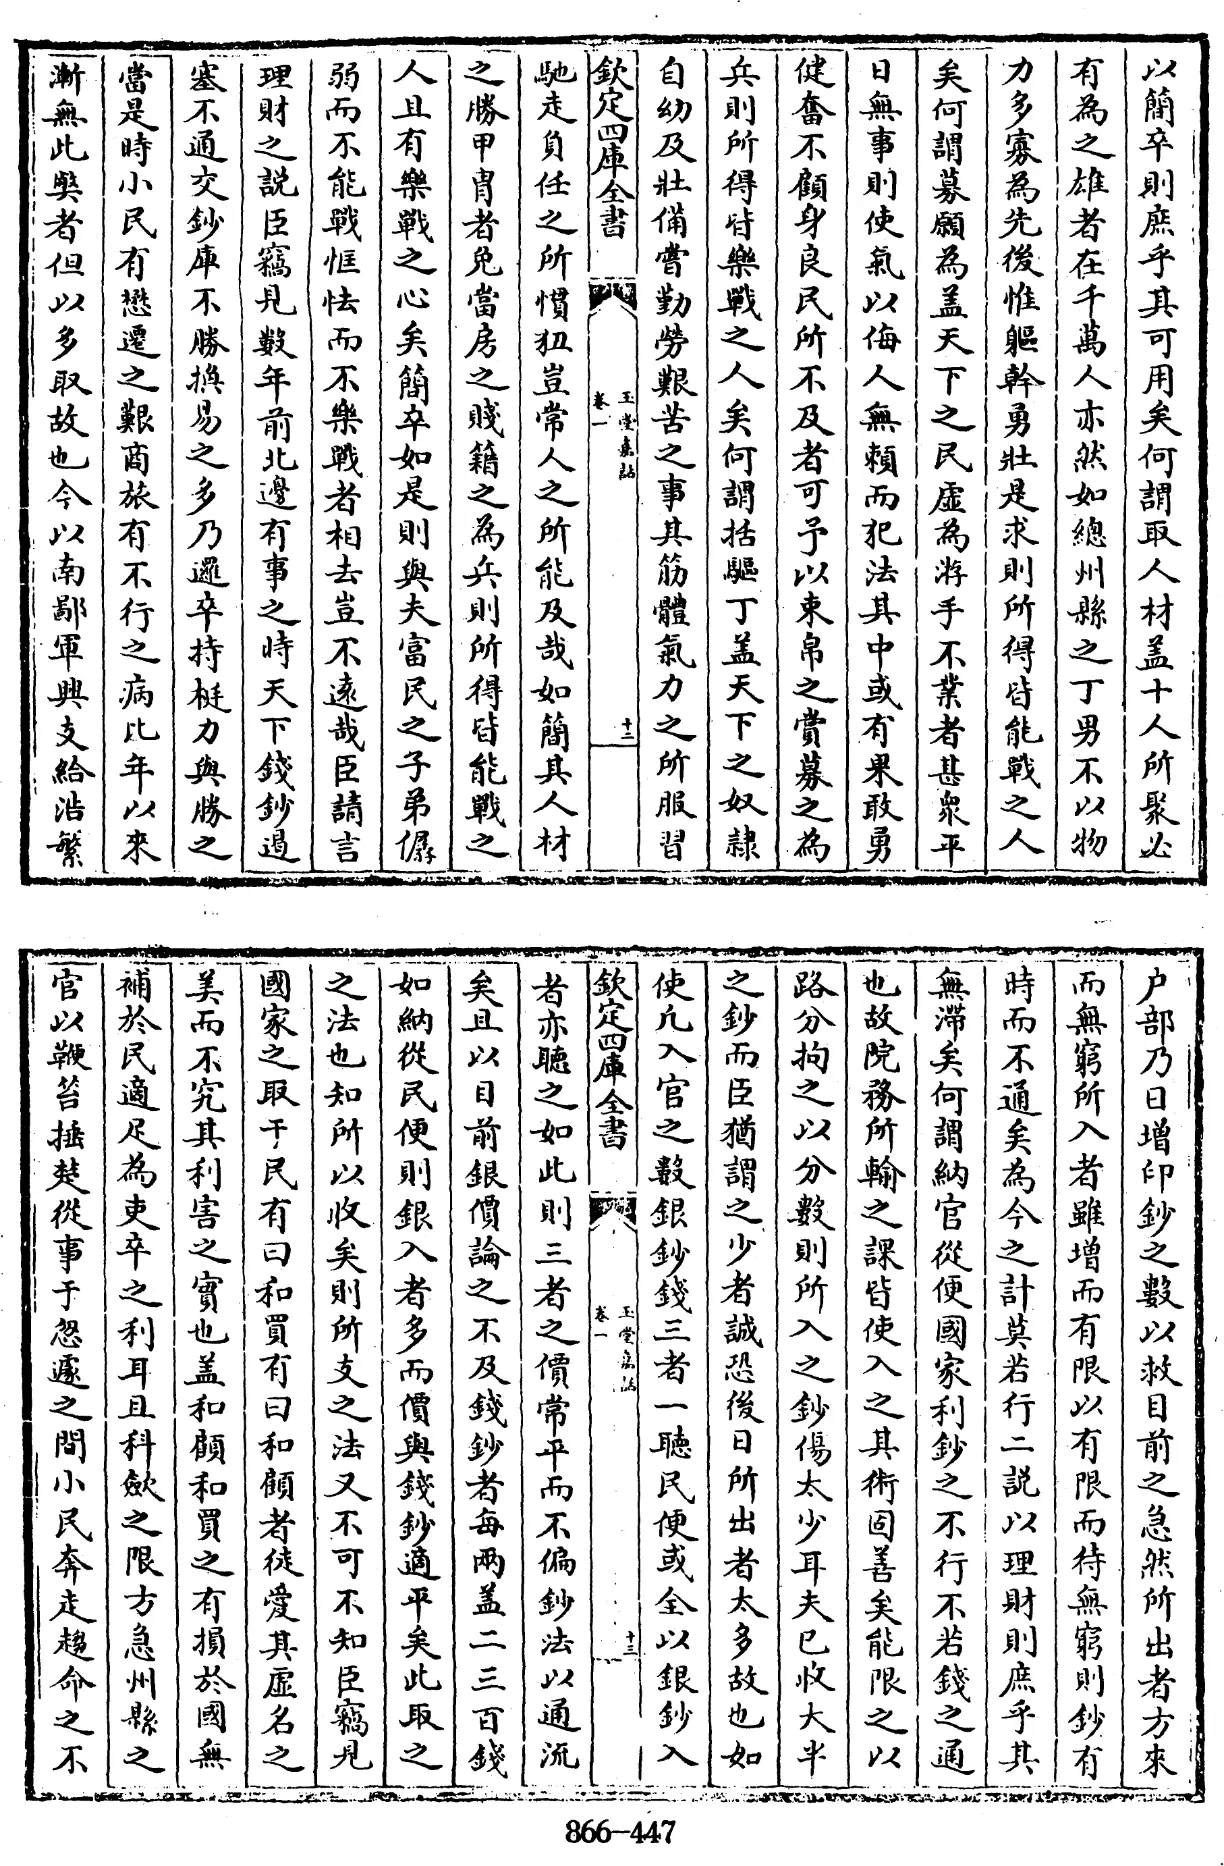 以簡卒則庶乎其可用矣何謂取人材盖十人所聚必
有為之雄者在千萬人亦然如總州縣之丁男不以物
力多寡為先後惟軀幹勇壯是求則所得皆能戰之人
矣何謂募願為盖天下之民虛為游手不業者甚衆平
日無事則使氣以侮人無賴而犯法其中或有果敢勇
健奮不顧身良民所不及者可予以束帛之賞募之為
兵則所得皆樂戰之人矣何謂括驅丁盖天下之奴隷
自幼及壯備嘗勤勞艱苦之事其筋體氣力之所服習
欽定四庫全書
玉堂嘉話
卷一
十二
馳走負任之所慣狃豈常人之所能及哉如簡其人材
之勝甲胄者免當房之賤籍之為兵則所得皆能戰之
人且有樂戰之心矣簡卒如是則與夫富民之子弟孱
弱而不能戰恇怯而不樂戰者相去豈不遠哉臣請言
理財之説臣竊見數年前北邊有事之時天下錢鈔過
塞不通交鈔庫不勝換易之多乃邏卒持梃力與勝之
當是時小民有懋遷之艱商旅有不行之病比年以來
漸無此弊者但以多取故也今以南鄙軍興支給浩繁
户部乃日增印鈔之數以救目前之急然所出者方來
而無窮所入者雖增而有限以有限而待無窮則鈔有
時而不通矣為今之計莫若行二説以理財則庶乎其
無滯矣何謂納官從便國家利鈔之不行不若錢之通
也故院務所輸之課皆使入之其術固善矣能限之以
路分拘之以分數則所入之鈔傷太少耳夫已收大半
之鈔而臣猶謂之少者誠恐後日所出者太多故也如
使凡入官之數銀鈔錢三者一聽民便或全以銀鈔入
欽定四庫全書
玉堂嘉話
卷一
十三
者亦聽之如此則三者之價常平而不偏鈔法以通流
矣且以目前銀價論之不及錢鈔者每兩盖二三百錢
如納從民便則銀入者多而價與錢鈔適平矣此取之
之法也知所以收矣則所支之法又不可不知臣竊見
國家之取干民有曰和買有曰和顧者徒愛其虛名之
美而不究其利害之實也盖和顧和買之有損於國無
補於民適足為吏卒之利耳且科歛之限方急州縣之
官以鞭笞捶楚從事于怱遽之間小民奔走趨命之不
866-447